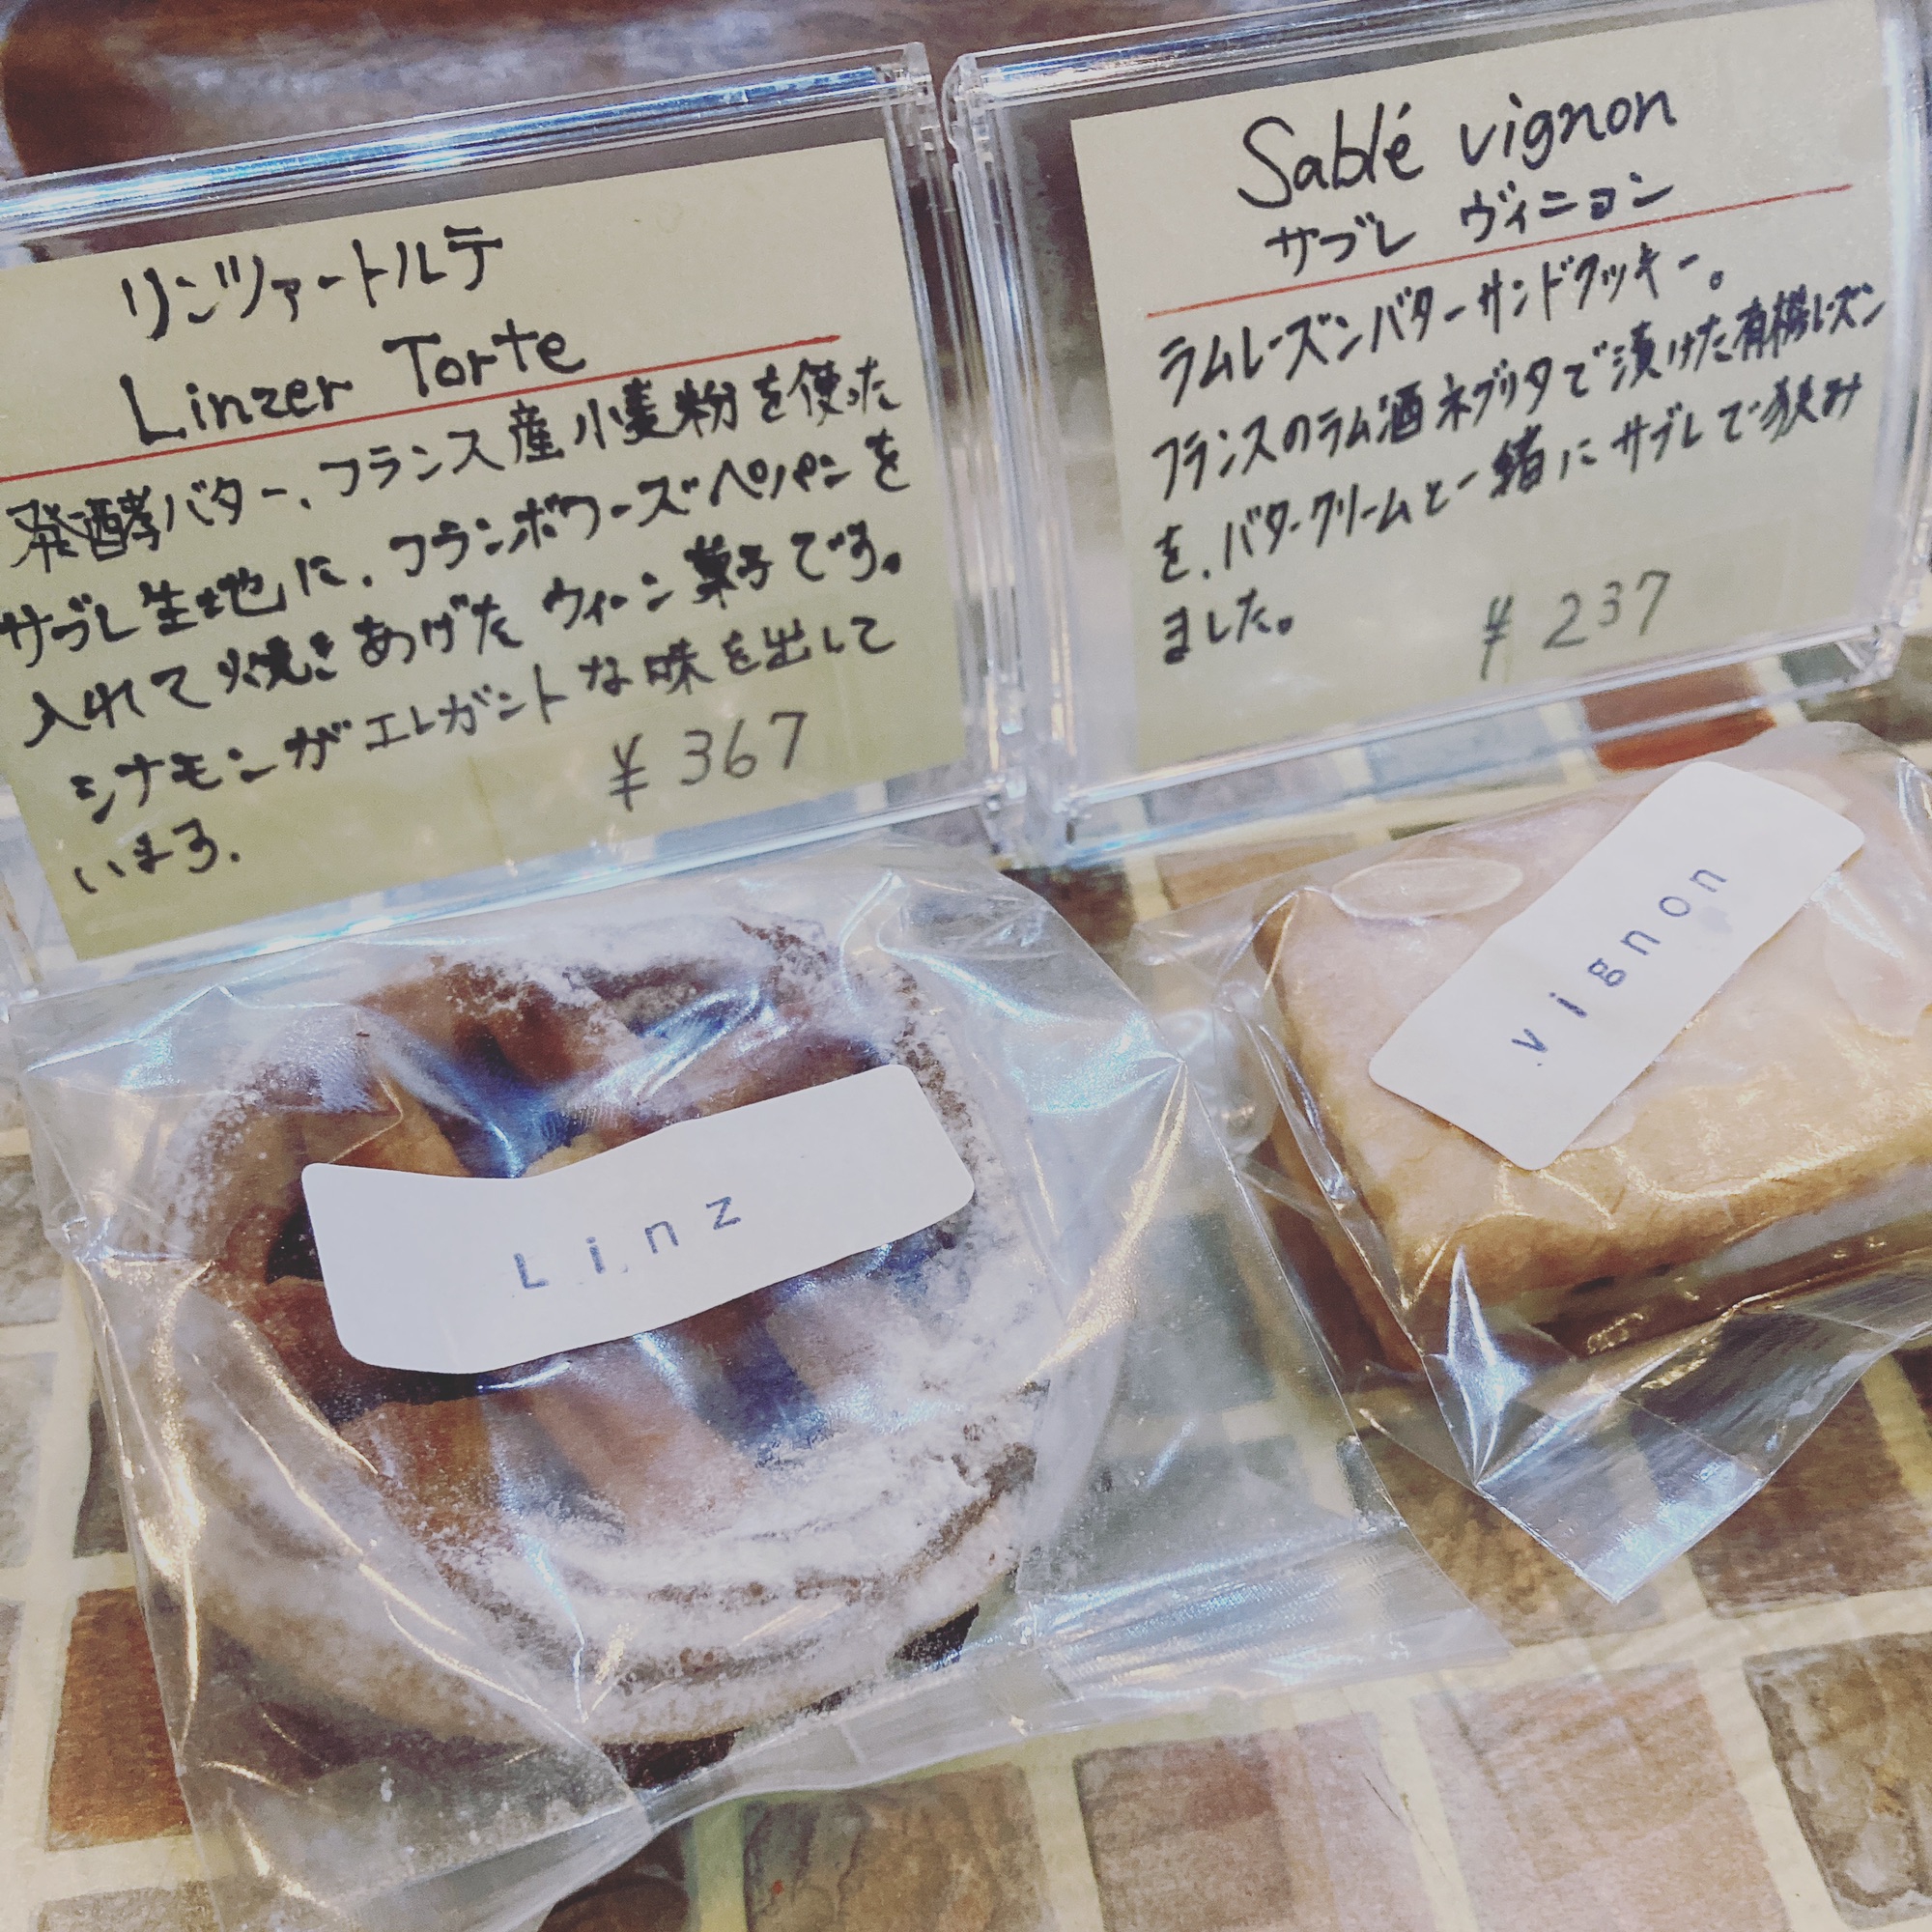 リンツァートルテ
Linzer Torte
発酵バター、フランス産小麦粉を使った
サブレ生地に、フランボワーズペパンを
入れて焼きあげたウィーン菓子です。
シナモンがエレガントな味を出して
います。
¥367
Sablé vignon
サブレ ヴィニョン
ラムレーズンバターサンドクッキー。
フランスのラム酒ネグリタで漬けた有機レーズン
を、バタークリームと一緒にサブレで挟み
ました。
¥237
Linz
vignon